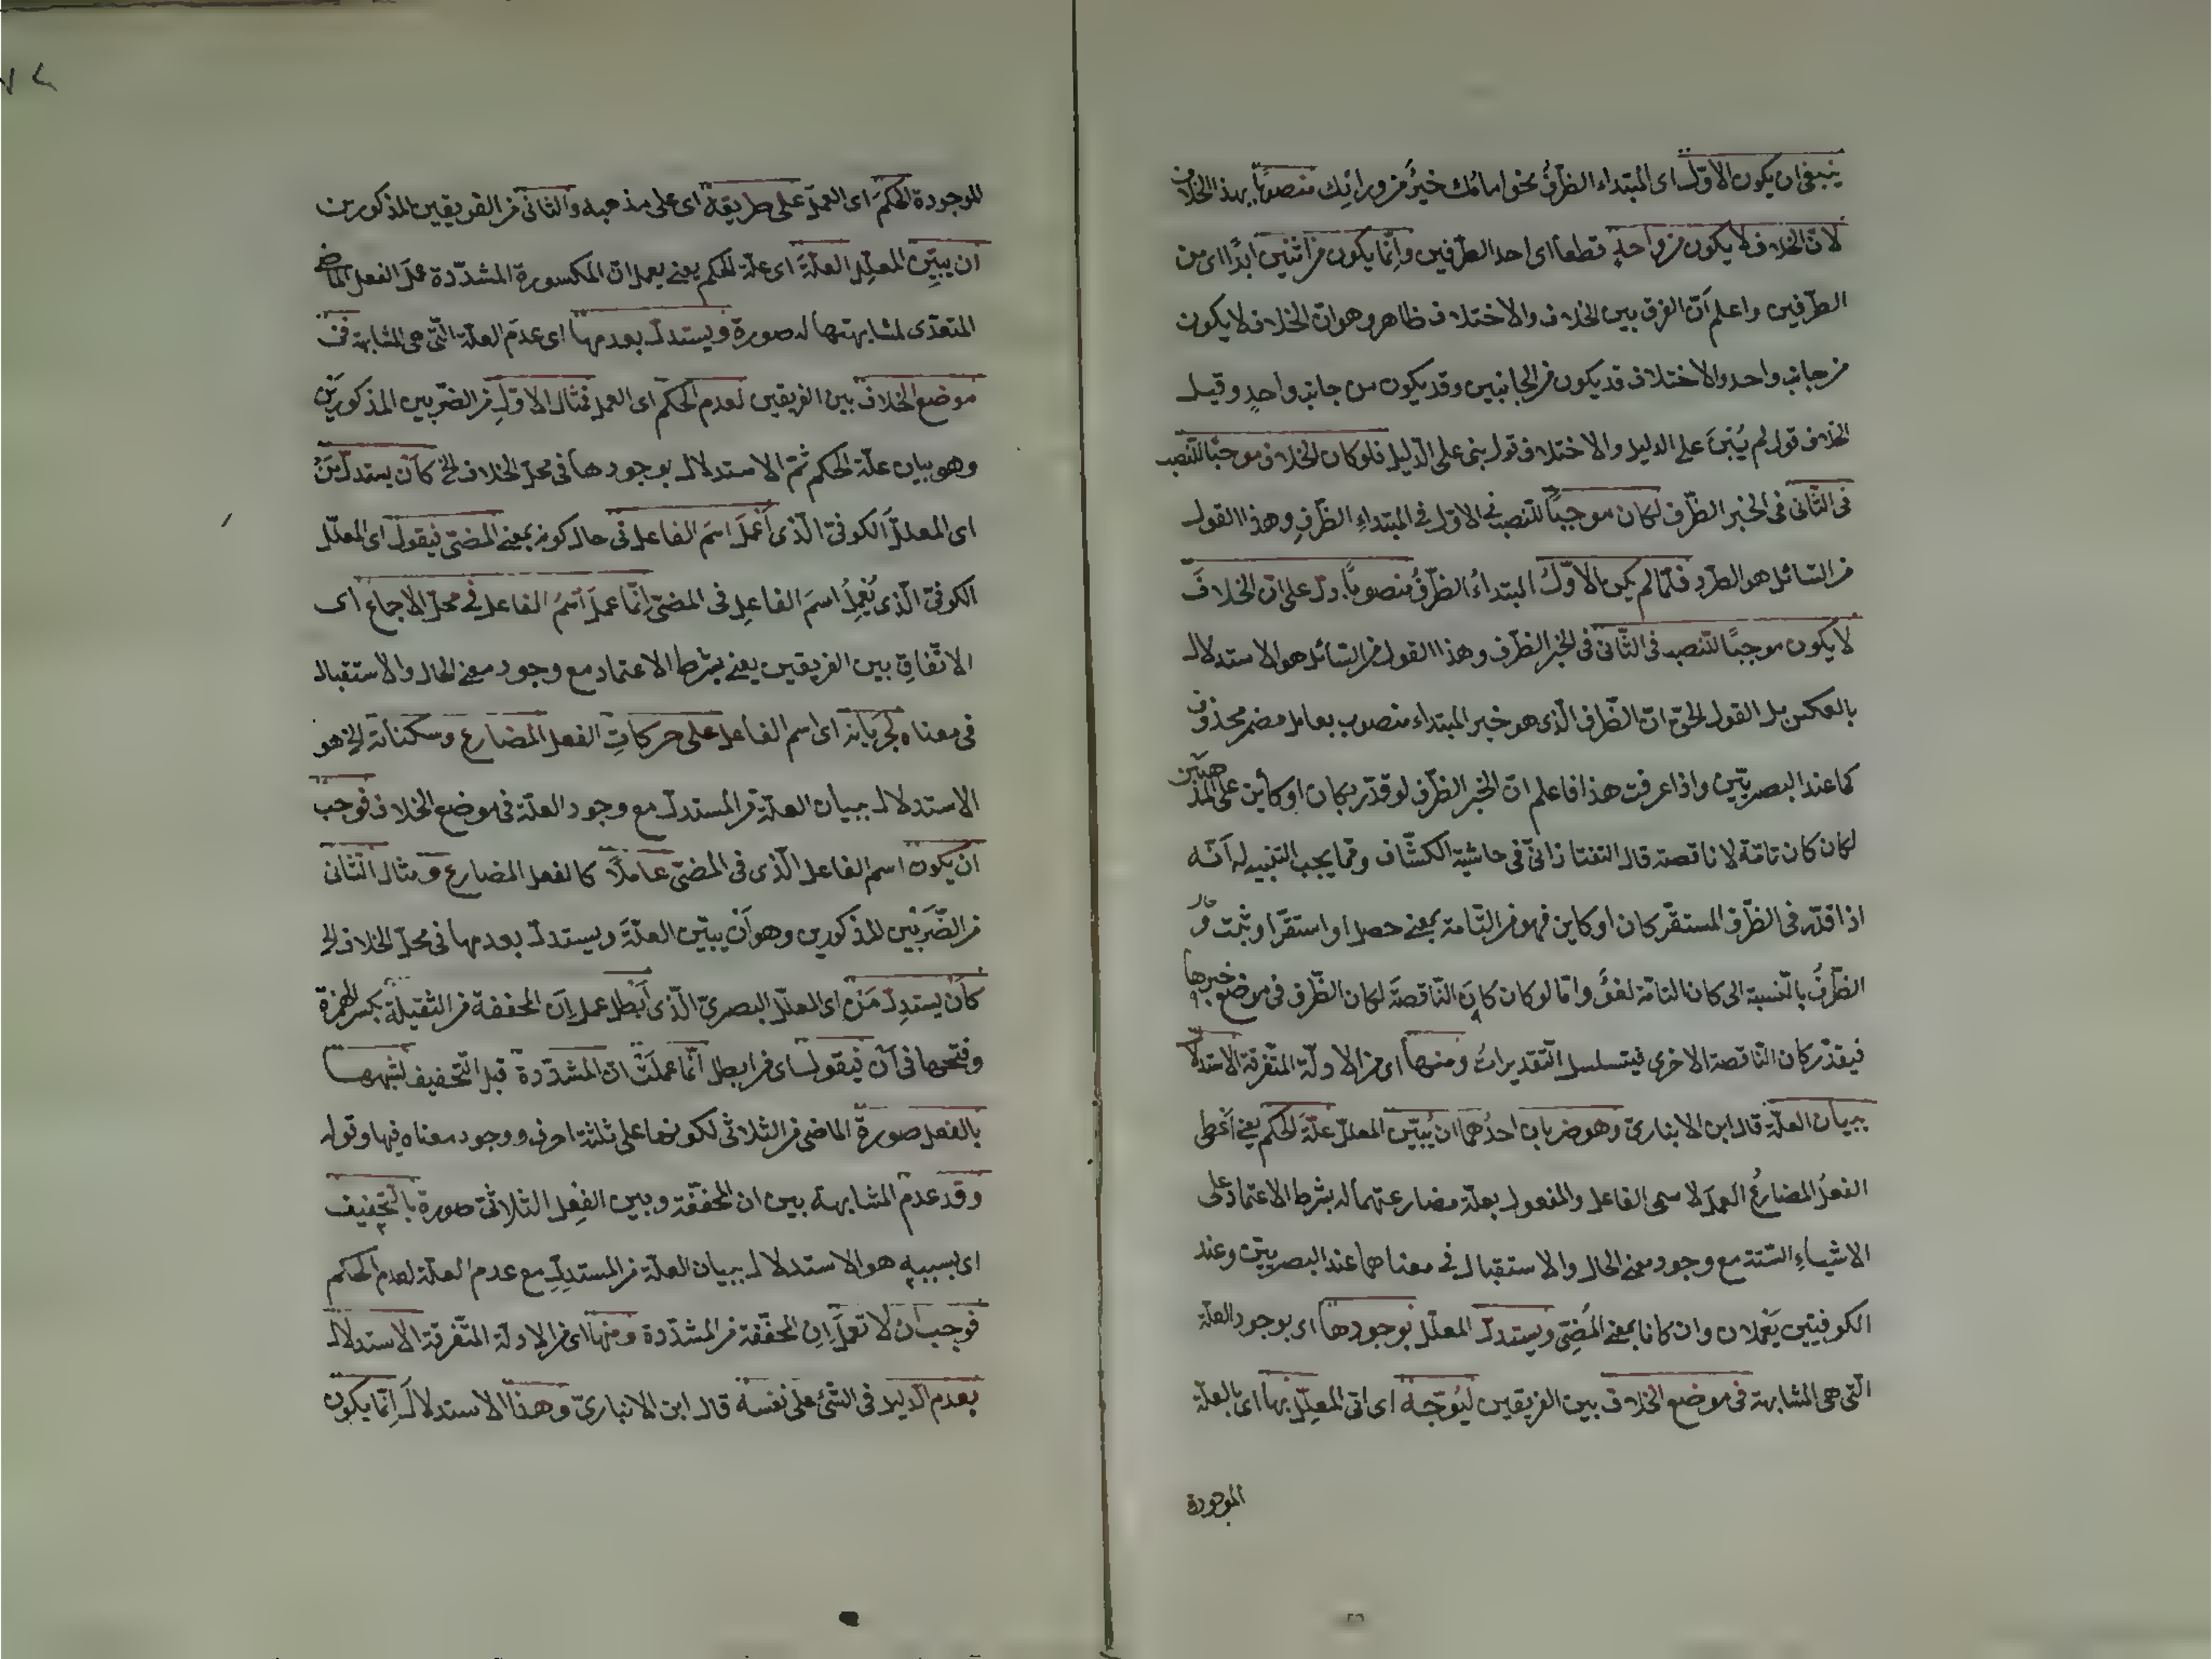 ينبغى ان يكون الاوّل اى المبتداء الظرفُ نحو امامك خيرٌ من ورائك منصوبًا بهذا الخلاف
لانّ الخلاف لا يكون من واحدٍ قطعاً اى احد الطرفين وانّما يكون من اثنين ابدًا اى من
الطرفين واعلم انّ الفرق بين الخلاف والاختلاف ظاهر وهو انّ الخلاف لا يكون
من جانب واحد والاختلاف قد يكون من الجانبين وقد يكون من جانب واحدٍ وقيل
الخلاف قول لم يُبْنَ على الدليل والاختلاف قول بنى على الدّليل فلو كان الخلاف موجبًا للنّصب
فى الثّانى فى الخبر الظّرف لكان موجبًا للنّصب فى الاوّل فى المبتداءِ الظّرفِ وهذا القول
من السّائل هو الطّرد فلمّا لم يكن الاوّلُ المبتداءُ الظّرفُ منصوبًا دلّ على انّ الخلافَ
لا يكون موجبًا للنّصب فى الثّانى فى الخبر الظّرف وهذا القول من السّائل هو الاستدلال
بالعكس بل القول الحقّ انّ الظّرف الّذى هو خبر المبتداء منصوب بعامل مضمر محذوف
كما عند البصريّين واذا عرفت هذا فاعلم انّ الخبر الظّرف لو قدّر بكان او كائن على المذهبين
لكان كان تامّة لا ناقصة قال التفتازانىّ فى حاشية الكشّاف وممّا يجب التنبيه له انّه
اذا قدّر فى الظّرف المستقرّ كان او كاين فهو من التّامة بمعنى حصل او استقرّ او ثبت و
الظّرفُ بالنّسبة الى كان التامّة لغوٌ وامّا لو كان كانَ النّاقصةَ لكان الظّرف فى موضع خبرها
فيقدّر كان النّاقصة الاخرى فيتسلسل التّقديراتُ ومنها اى من الادلّة المتفرقة الاستدلال
ببيان العلّة قال ابن الانبارىّ وهو ضربان احدُهما ان يُبيّن المعلّل علّةَ الحكم يعنى اَعْطى
الفعلُ المضارعُ العملَ لاسمى الفاعل والمفعول بعلّة مضارعتهما له بشرط الاعتماد على
الاشياءِ السّتة مع وجود معنى الحال والاستقبال فى معناهما عند البصريين وعند
الكوفيين يَعْملان وان كانا بمعنى المُضِىّ ويستدلّ المعلّل بوجودها اى بوجود العلّة
الّتى هى المشابهة فى موضع الخلاف بين الفريقين ليُوَجّهَ اى اتى المعلّل بها اى بالعلّة
الموجودة
الموجودة الحكمَ اى العمل على طريقه اى على مذهبه والثانى من الفريقين المذكورين
ان يبيّن المعلّل العلّةَ اى علّة الحكم يعنى يعمل انّ المكسورة المشدّدة عملَ الفعل الماضى
المتعدّى لمشابهتها له صورة ويستدلّ بعدمها اى عدمَ العلّة الّتى هى المشابهة فى
موضع الخلاف بين الفريقين لعدم الحكم اى العمل فمثال الاوّل من الضّربين المذكورين
وهو بيان علّة الحكم ثمّ الاستدلال بوجودها فى محلّ الخلاف الخ كاَنْ يستدلّ مَنْ
اى المعلّل الكوفىّ الّذى اَعْمَلَ اسمَ الفاعل فى حال كونه بمعنى المضىّ فيقول اى المعلّل
الكوفىّ الّذى يُعْمِلُ اسمَ الفاعلِ فى المضىّ انّما عملَ اسمُ الفاعل فى محلّ الاجماع اى
الاتّفاقِ بين الفريقين يعنى بشرط الاعتماد مع وجود معنى الحال والاستقبال
فى معناه لجَرَيانه اى اسم الفاعل على حركاتِ الفعل المضارع وسكناته الخ هو
الاستدلال ببيان العلّة من المستدلّ مع وجود العلّة فى موضع الخلاف فوجب
ان يكون اسم الفاعل الّذى فى المضىّ عاملًا كالفعل المضارع ومثال الثّانى
من الضّرَبْين المذكورين وهو اَنْ يبيّن العلّةَ ويستدلّ بعدمها فى محلّ الخلاف الخ
كاَنْ يستدِلّ مَنْ اى المعلّل البصرىّ الّذى اَبطل عمل اِنَ المخففة من الثّقيلة بكسر الهمزة
وفتحها فى اَن فيقول اى من ابطل انّما عملَتْ انّ المشدّدة قبل التّخفيف لشبهها
بالفعل صورةً الماضى من الثلاثى لكونها على ثلثة احرف ووجود معناه فيها وقوله
وقد عدم المشابهة بين ان المخفّفة وبين الفِعل الثلاثىّ صورة بالتّخفيف
اى بسببه هو الاستدلال ببيان العلّة من المستدِلّ مع عدم العلّة لعدم الحكم
فوجب ان لا تعملَ اِن المخفّفة من المشدّدة ومنها اى من الادلّة المتّفرقة الاستدلال
بعدم الدّليل فى الشّئ على نفسه قال ابن الانبارىّ وهذا الاستدلال اِنّما يكون